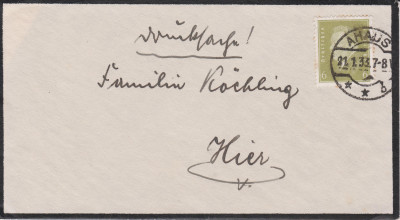 Drucksache!
Familie Köchling
Hier
AHAUS
21.1.33.7-8
* * b
6